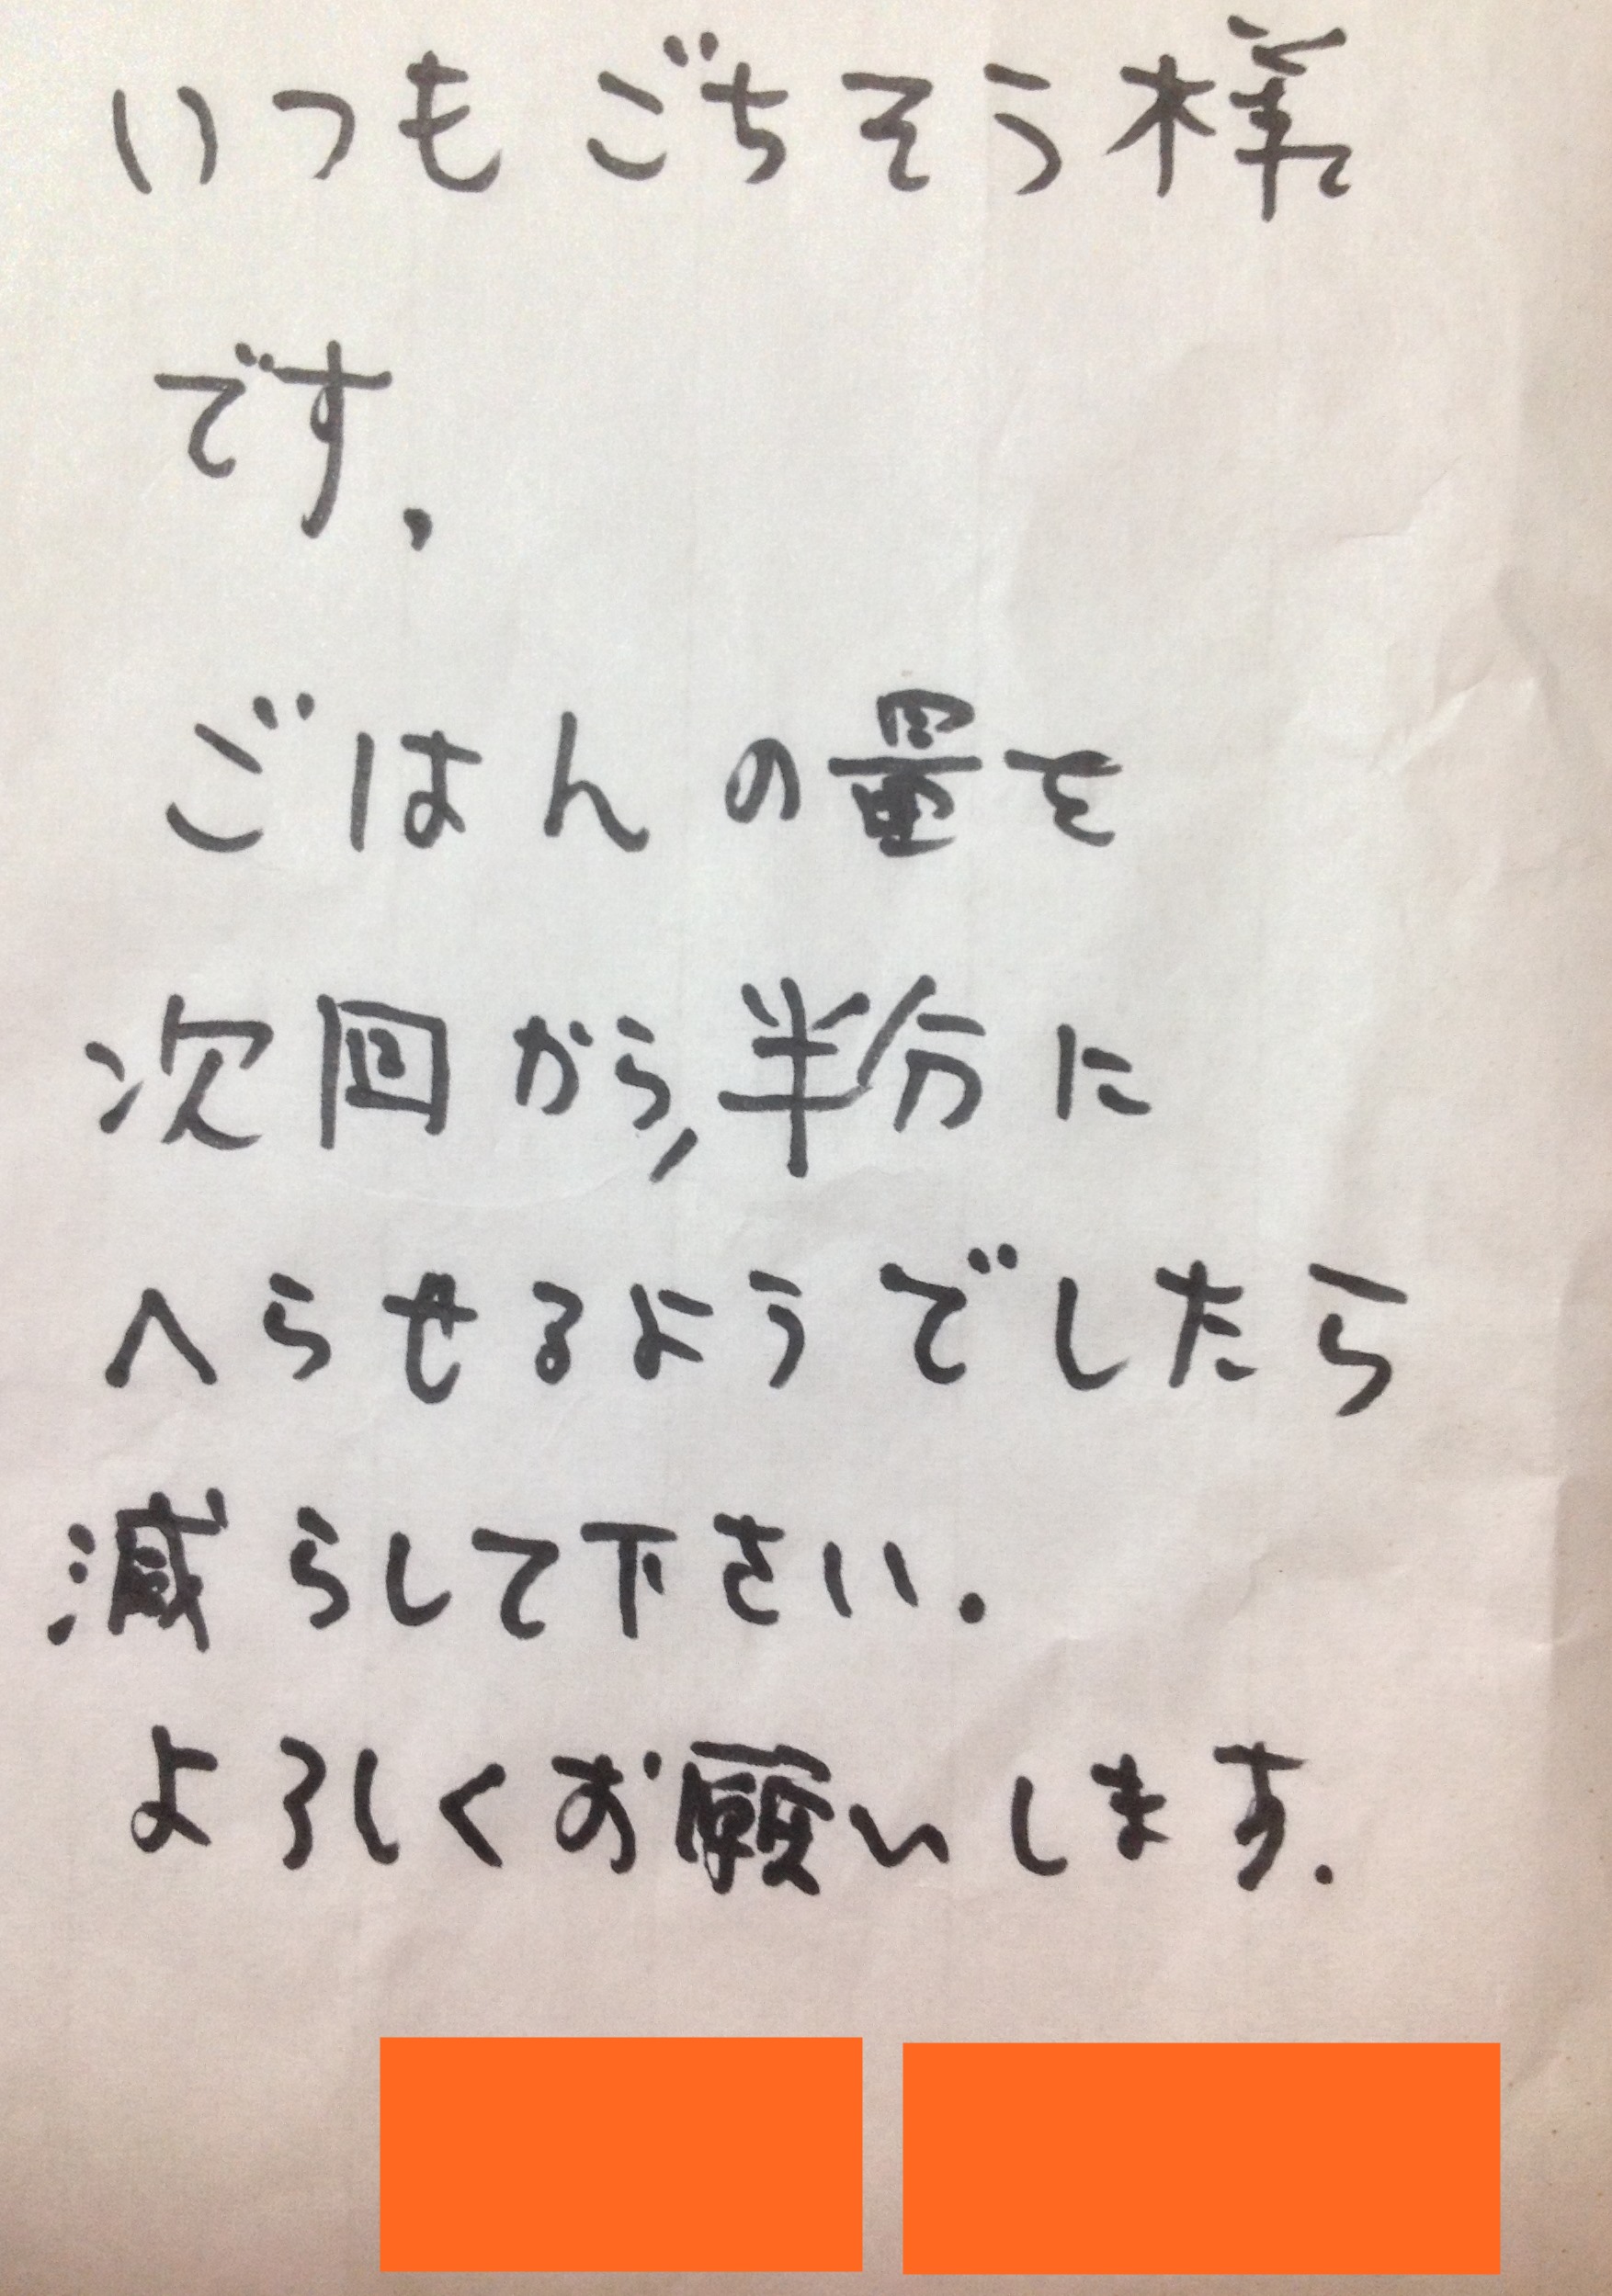 いつもごちそう様
です.
ごはんの量を
次回から,半分に
へらせるようでしたら
減らして下さい.
よろしくお願いします.